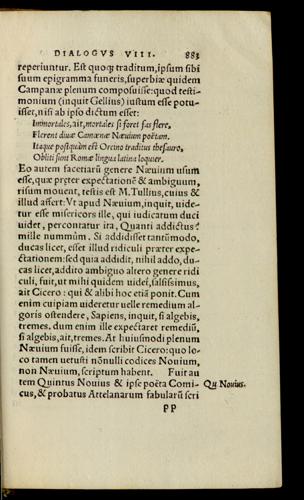 DIALOGVS VIII. 883
reperiuntur. Est quoq; traditum, ipsum sibi
suum epigramma funeris, superbiæ quidem
Campanæ plenum composuisse: quod testi-
monium (inquit Gellius) iustum esse potu-
isset, nisi ab ipso dictum esset:
Immortales, ait, mortales si foret fas flere,
Flerent diuæ Camœnæ Næuium poëtam.
Itaque postquàm est Orcino traditus thesauro,
Obliti sunt Romæ lingua latina loquier.
Eo autem facetiarū genere Næuium usum
esse, quæ præter expectationē & ambiguum,
risum mouent, testis est M. Tullius, cuius &
illud affert: Vt apud Næuium, inquit, uide-
tur esse misericors ille, qui iudicatum duci
uidet, percontatur ita, Quanti addictus?
mille nummûm. Si addidisset tantūmodo,
ducas licet, esset illud ridiculi præter expe-
ctationem: sed quia addidit, nihil addo, du-
cas licet, addito ambiguo altero genere ridi
culi, fuit, ut mihi quidem uidet, salsissimus,
ait Cicero: qui & alibi hoc etiā ponit. Cum
enim cuipiam uideretur uelle remedium al-
goris ostendere, Sapiens, inquit, si algebis,
tremes. dum enim ille expectaret remediū,
si algebis, ait, tremes. At huiusmodi plenum
Næuium fuisse, idem scribit Cicero: quo lo-
co tamen uetusti nōnulli codices Nouium,
non Næuium, scriptum habent. Fuit au
tem Quintus Nouius & ipse poëta Comi- Qu Nouius.
cus, & probatus Attelanarum fabularū scri
PP